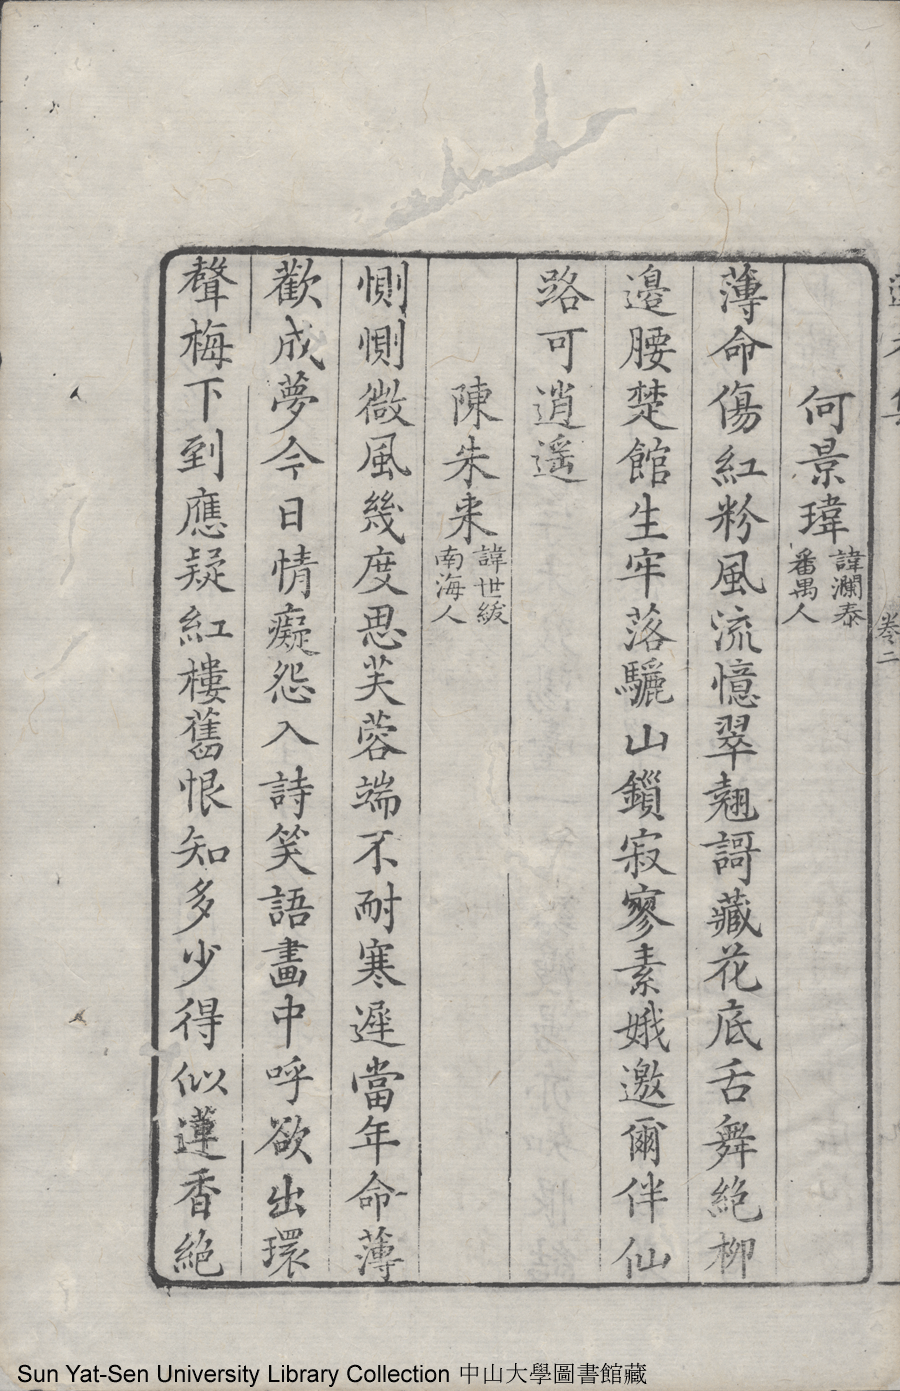 何景瑋 諱瀾泰 番禺人
薄命傷紅粉風流憶翠翹謌藏花底舌舞絕柳
邉腰楚館生牢落驪山鎖寂寥素娥邀爾伴仙
路可逍遥
陳朱来 諱世紱 南海人
惻惻微風幾度思芙蓉端不耐寒遲當年命薄
歡成夢今日情癡怨入詩笑語畫中呼欲出環
聲梅下到應疑紅樓舊恨知多少得似蓮香絕
卷二
Sun Yat-Sen University Library Collection 中山大學圖書館藏